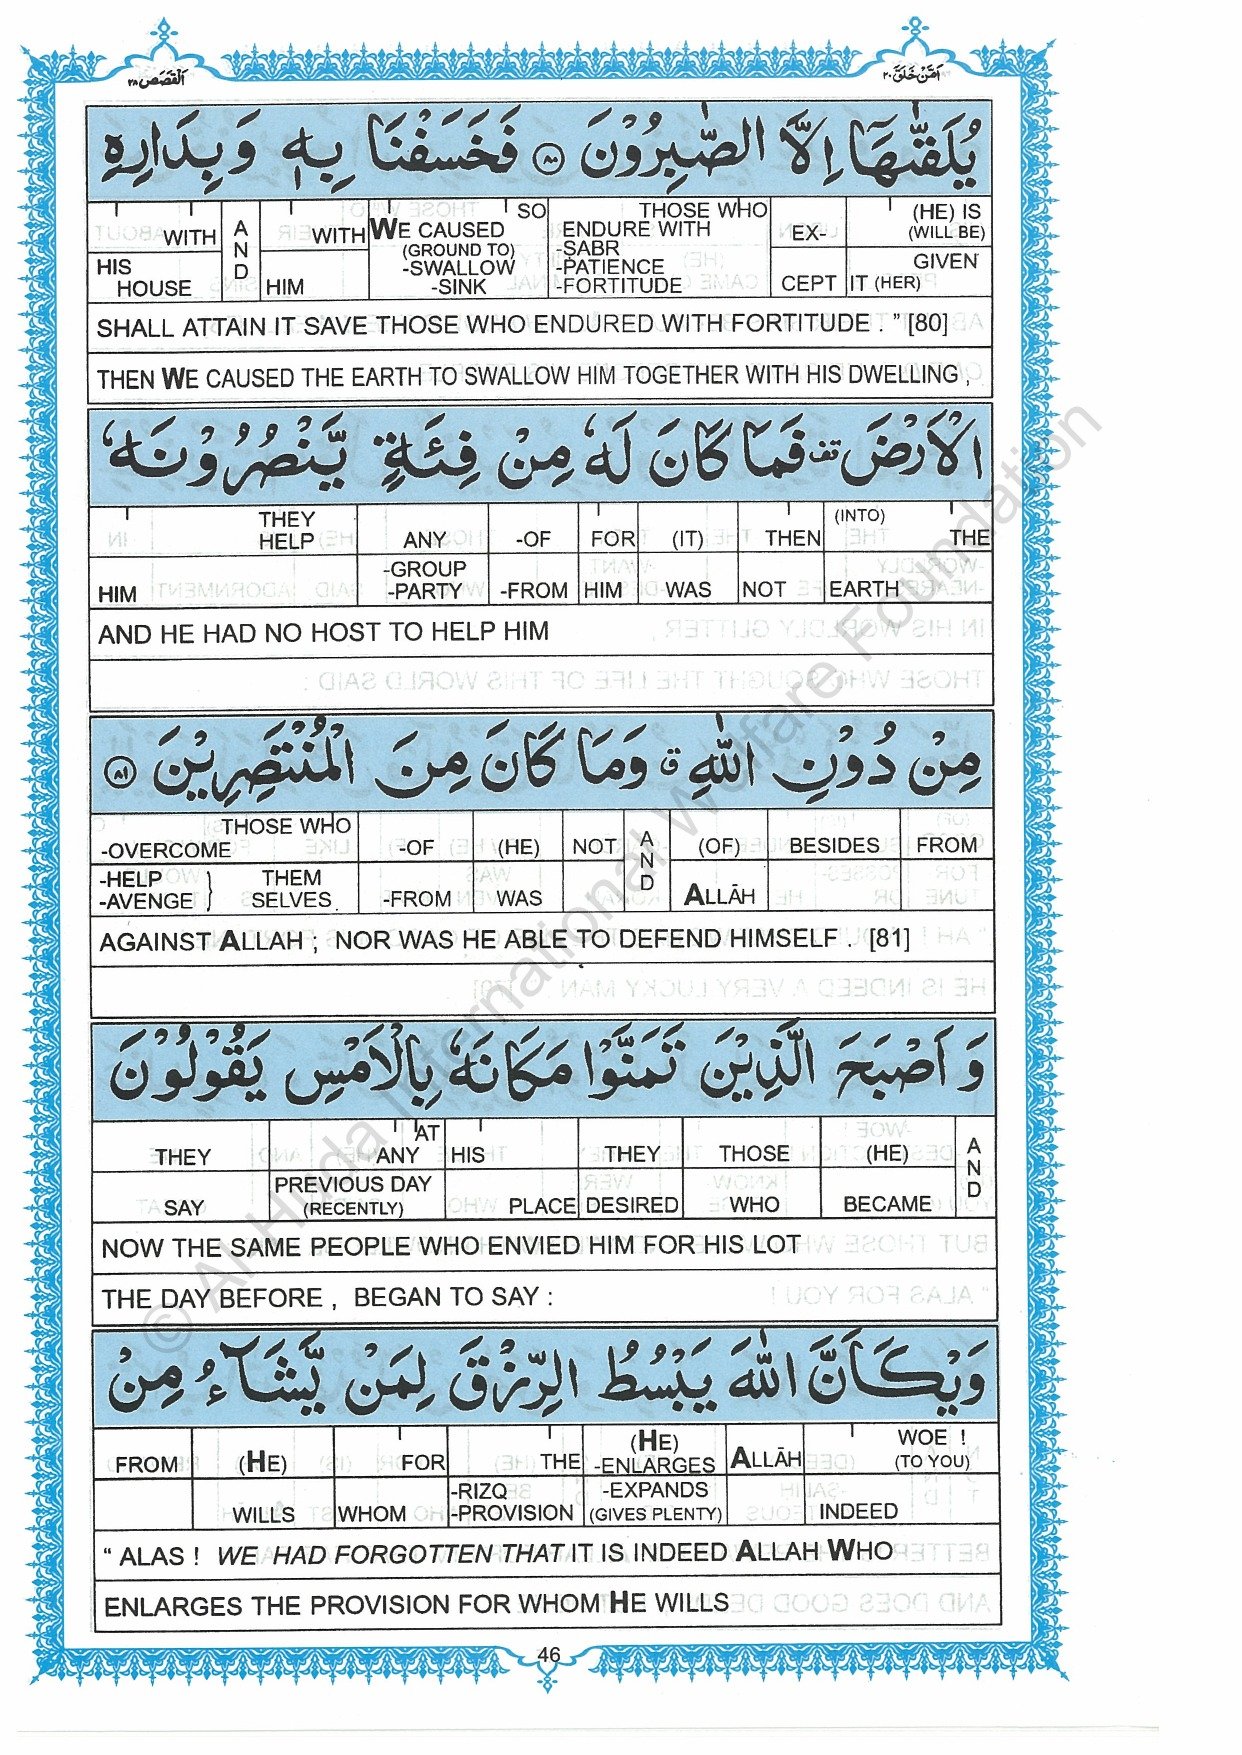 اَمَّنْ خَلَقَ ٢٠
اَلْقَصَص ٢٨
يُلَقّٰىهَاۤ اِلَّا الصّٰبِرُوْنَ ۝٨٠ فَخَسَفْنَا بِهٖ وَ بِدَارِهِ
WITH AND WITH WE CAUSED SO THOSE WHO (HE) IS
HIS HOUSE HIM (GROUND TO) -SWALLOW -SINK ENDURE WITH -SABR -PATIENCE -FORTITUDE EX-CEPT (WILL BE) GIVEN IT (HER)
SHALL ATTAIN IT SAVE THOSE WHO ENDURED WITH FORTITUDE . ” [80]
THEN WE CAUSED THE EARTH TO SWALLOW HIM TOGETHER WITH HIS DWELLING ,
الْاَرْضَ قف فَمَا كَانَ لَهٗ مِنْ فِئَةٍ يَّنْصُرُوْنَهٗ
THEY HELP ANY -OF FOR (IT) THEN (INTO) THE
HIM -GROUP -PARTY -FROM HIM WAS NOT EARTH
AND HE HAD NO HOST TO HELP HIM
مِنْ دُوْنِ اللّٰهِ ق وَمَا كَانَ مِنَ الْمُنْتَصِرِيْنَ ۝٨١
THOSE WHO -OVERCOME -OF (HE) NOT AND (OF) BESIDES FROM
-HELP -AVENGE } THEM SELVES -FROM WAS ALLĀH
AGAINST ALLAH ; NOR WAS HE ABLE TO DEFEND HIMSELF . [81]
وَ اَصْبَحَ الَّذِيْنَ تَمَنَّوْا مَكَانَهٗ بِالْاَمْسِ يَقُوْلُوْنَ
THEY AT ANY HIS THEY THOSE (HE) AND
SAY PREVIOUS DAY (RECENTLY) PLACE DESIRED WHO BECAME
NOW THE SAME PEOPLE WHO ENVIED HIM FOR HIS LOT
THE DAY BEFORE , BEGAN TO SAY :
وَيْكَاَنَّ اللّٰهَ يَبْسُطُ الرِّزْقَ لِمَنْ يَّشَآءُ مِنْ
FROM (HE) FOR THE (HE) -ENLARGES ALLĀH WOE ! (TO YOU)
WILLS WHOM -RIZQ -PROVISION -EXPANDS (GIVES PLENTY) INDEED
“ ALAS ! WE HAD FORGOTTEN THAT IT IS INDEED ALLAH WHO
ENLARGES THE PROVISION FOR WHOM HE WILLS
46
© Al-Huda International Welfare Foundation